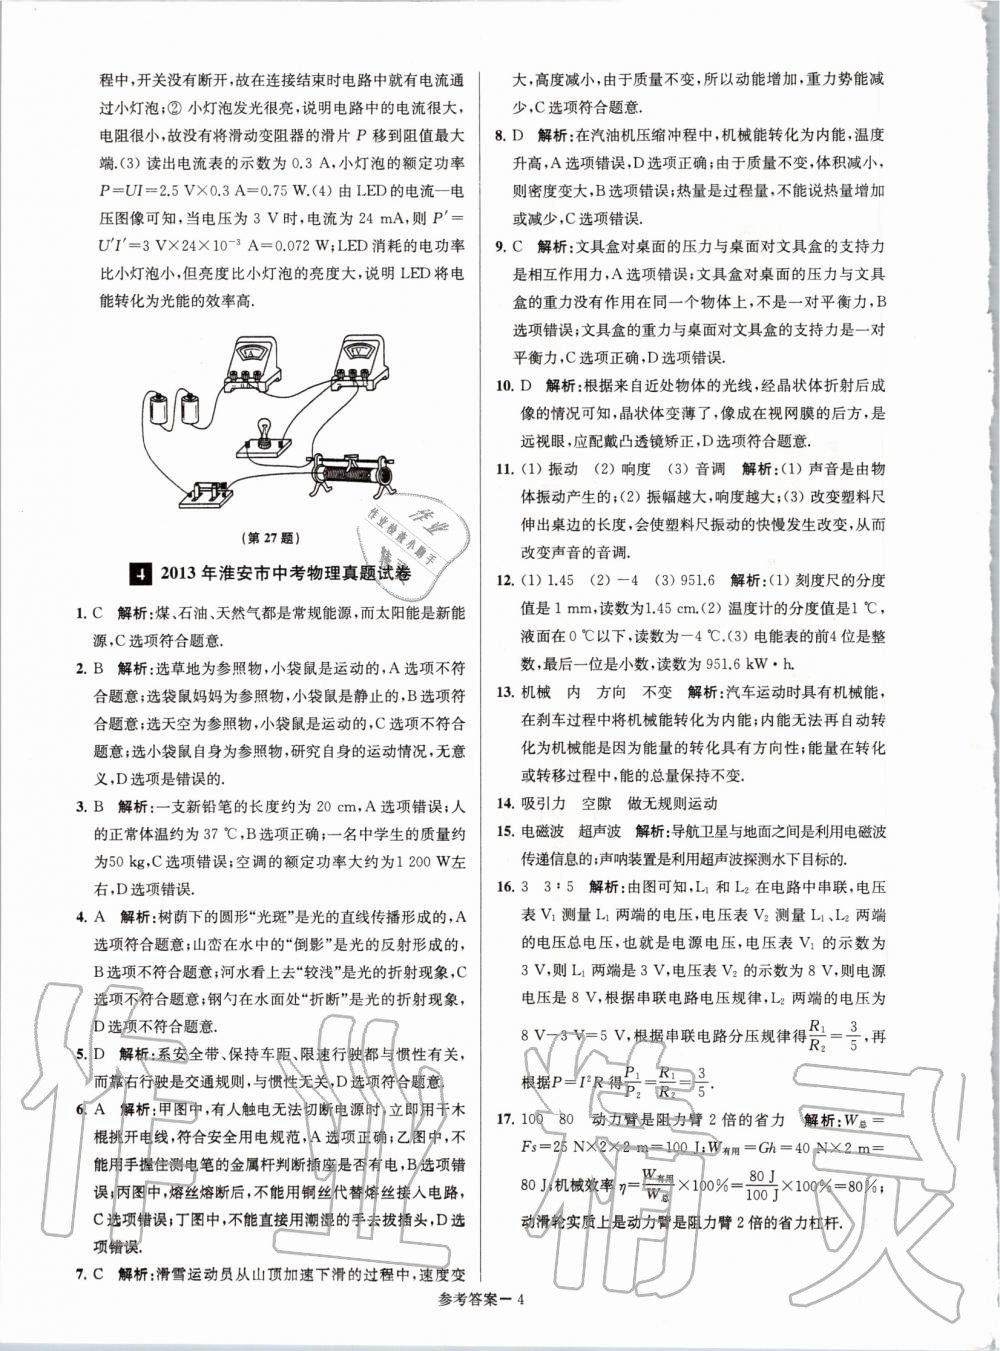 程中,开关没有断开,故在连接结束时电路中就有电流通
过小灯泡;② 小灯泡发光很亮,说明电路中的电流很大,
电阻很小,故没有将滑动变阻器的滑片 P 移到阻值最大
端.(3) 读出电流表的示数为 0.3 A,小灯泡的额定功率
P=UI=2.5 V×0.3 A=0.75 W.(4) 由 LED的电流—电
压图像可知,当电压为 3 V 时,电流为 24 mA,则 P′=
U′I′=3 V×24×10⁻³ A=0.072 W;LED 消耗的电功率
比小灯泡小,但亮度比小灯泡的亮度大,说明 LED 将电
能转化为光能的效率高.
(第 27 题)
4 2013 年淮安市中考物理真题试卷
1. C 解析:煤、石油、天然气都是常规能源,而太阳能是新能
源,C 选项符合题意.
2. B 解析:选草地为参照物,小袋鼠是运动的,A 选项不符
合题意;选袋鼠妈妈为参照物,小袋鼠是静止的,B 选项符
合题意;选天空为参照物,小袋鼠是运动的,C 选项不符合
题意;选小袋鼠自身为参照物,研究自身的运动情况,无意
义,D 选项是错误的.
3. B 解析:一支新铅笔的长度约为 20 cm,A 选项错误;人
的正常体温约为 37 ℃,B 选项正确;一名中学生的质量约
为50 kg,C 选项错误;空调的额定功率大约为1 200 W左
右,D 选项错误.
4. A 解析:树荫下的圆形“光斑”是光的直线传播形成的,A
选项符合题意;山峦在水中的“倒影”是光的反射形成的,
B 选项不符合题意;河水看上去“较浅”是光的折射现象,C
选项不符合题意;钢勺在水面处“折断”是光的折射现象,
D 选项不符合题意.
5. D 解析:系安全带、保持车距、限速行驶都与惯性有关,
而靠右行驶是交通规则,与惯性无关,D 选项符合题意.
6. A 解析:甲图中,有人触电无法切断电源时,立即用干木
棍挑开电线,符合安全用电规范,A 选项正确;乙图中,不
能用手握住测电笔的金属杆判断插座是否有电,B 选项错
误;丙图中,熔丝熔断后,不能用铜丝代替熔丝接入电路,
C 选项错误;丁图中,不能直接用潮湿的手去拔插头,D 选
项错误.
7. C 解析:滑雪运动员从山顶加速下滑的过程中,速度变
大,高度减小,由于质量不变,所以动能增加,重力势能减
少,C 选项符合题意.
8. D 解析:在汽油机压缩冲程中,机械能转化为内能,温度
升高,A 选项错误,D 选项正确;由于质量不变,体积减小,
则密度变大,B 选项错误;热量是过程量,不能说热量增加
或减少,C 选项错误.
9. C 解析:文具盒对桌面的压力与桌面对文具盒的支持力
是相互作用力,A 选项错误;文具盒对桌面的压力与文具
盒的重力没有作用在同一个物体上,不是一对平衡力,B
选项错误;文具盒的重力与桌面对文具盒的支持力是一对
平衡力,C 选项正确,D 选项错误.
10. D 解析:根据来自近处物体的光线,经晶状体折射后成
像的情况可知,晶状体变薄了,像成在视网膜的后方,是
远视眼,应配戴凸透镜矫正,D 选项符合题意.
11. (1) 振动 (2) 响度 (3) 音调 解析:(1) 声音是由物
体振动产生的;(2) 振幅越大,响度越大;(3) 改变塑料尺
伸出桌边的长度,会使塑料尺振动的快慢发生改变,从而
改变声音的音调.
12. (1) 1.45 (2) −4 (3) 951.6 解析:(1) 刻度尺的分度
值是 1 mm,读数为1.45 cm.(2) 温度计的分度值是1 ℃,
液面在 0 ℃以下,读数为−4 ℃.(3) 电能表的前4 位是整
数,最后一位是小数,读数为 951.6 kW·h.
13. 机械 内 方向 不变 解析:汽车运动时具有机械能,
在刹车过程中将机械能转化为内能;内能无法再自动转
化为机械能是因为能量的转化具有方向性;能量在转化
或转移过程中,能的总量保持不变.
14. 吸引力 空隙 做无规则运动
15. 电磁波 超声波 解析:导航卫星与地面之间是利用电磁波
传递信息的;声呐装置是利用超声波探测水下目标的.
16. 3 3∶5 解析:由图可知,L₁ 和 L₂ 在电路中串联,电压
表 V₁ 测量 L₁ 两端的电压,电压表 V₂ 测量 L₁、L₂ 两端
的电压总电压,也就是电源电压,电压表 V₁ 的示数为
3 V,则 L₁ 两端是 3 V,电压表 V₂ 的示数为 8 V,则电源
电压是 8 V,根据串联电路电压规律,L₂ 两端的电压为
8 V−3 V=5 V,根据串联电路分压规律得R₁/R₂=3/5,再
根据P=I²R 得P₁/P₂=R₁/R₂=3/5.
17. 100 80 动力臂是阻力臂 2 倍的省力 解析:W总=
Fs=25 N×2×2 m=100 J;W有用=Gh=40 N×2 m=
80 J;机械效率 η=W有用/W总×100%=80 J/100 J×100%=80%;
动滑轮实质上是动力臂是阻力臂 2 倍的省力杠杆.
参考答案—4
作业
作业检查小助手
精灵
作业精灵